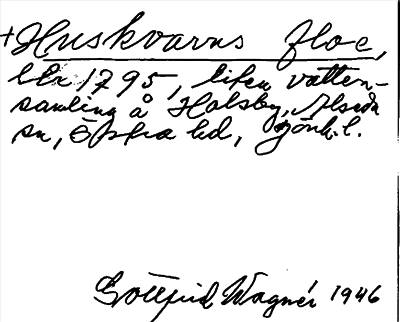 +Huskvarns floe,
lhx 1795, liten vatten-
samling å Holsby, Alseda
sn, Östra hd, Jönk. l.
Gottfrid Wagnér 1946